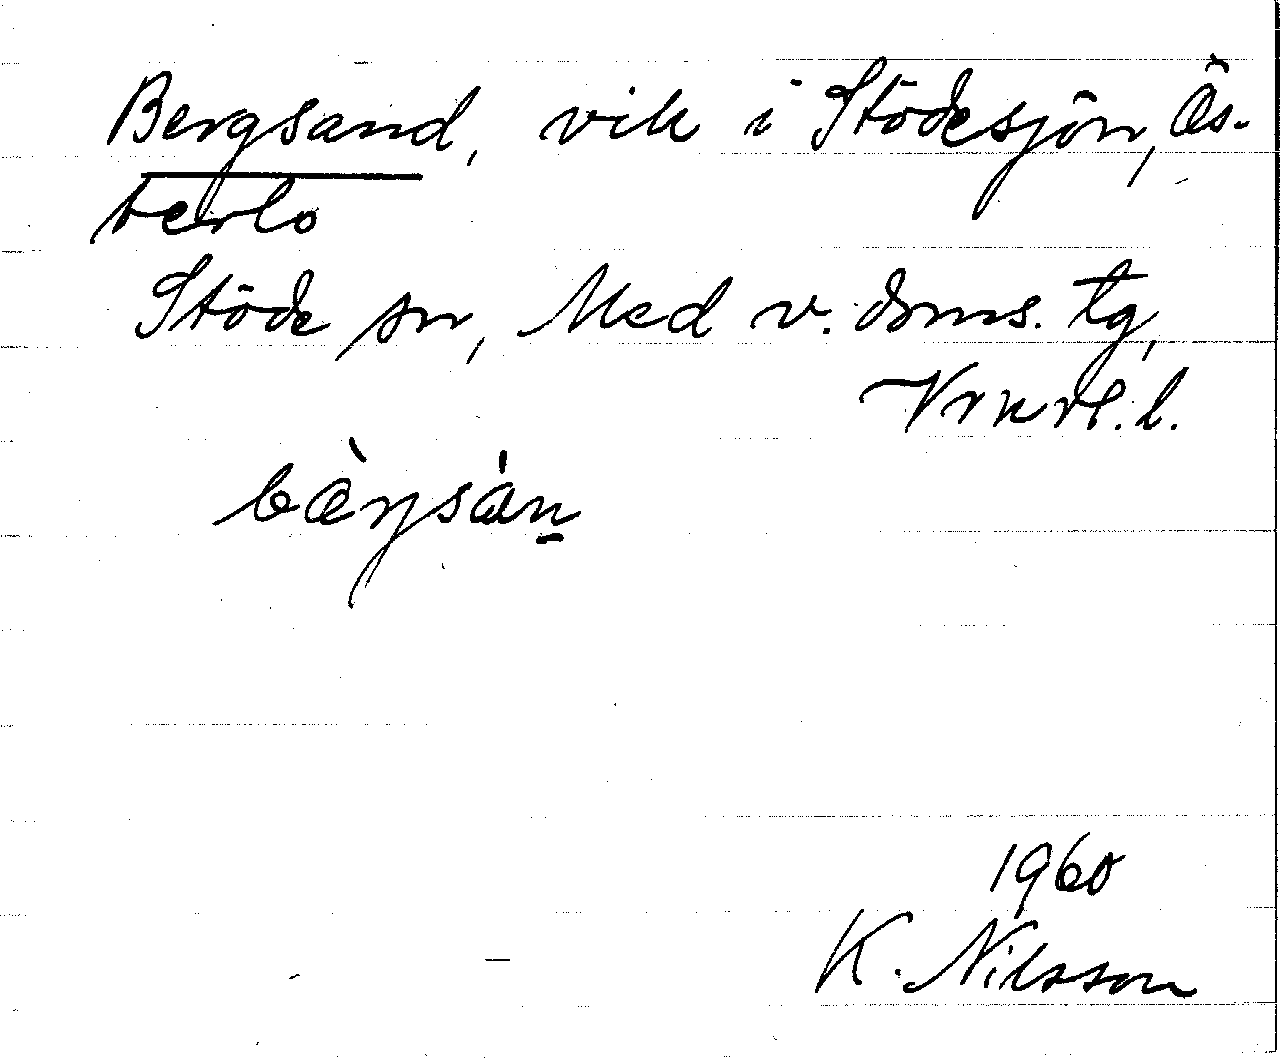 Bergsand, vik i Stödesjön, Ös-
terlo
Stöde sn, Med v. doms. tg,
Vrnrl. l.
bæ̀rsán
1960
K. Nilsson